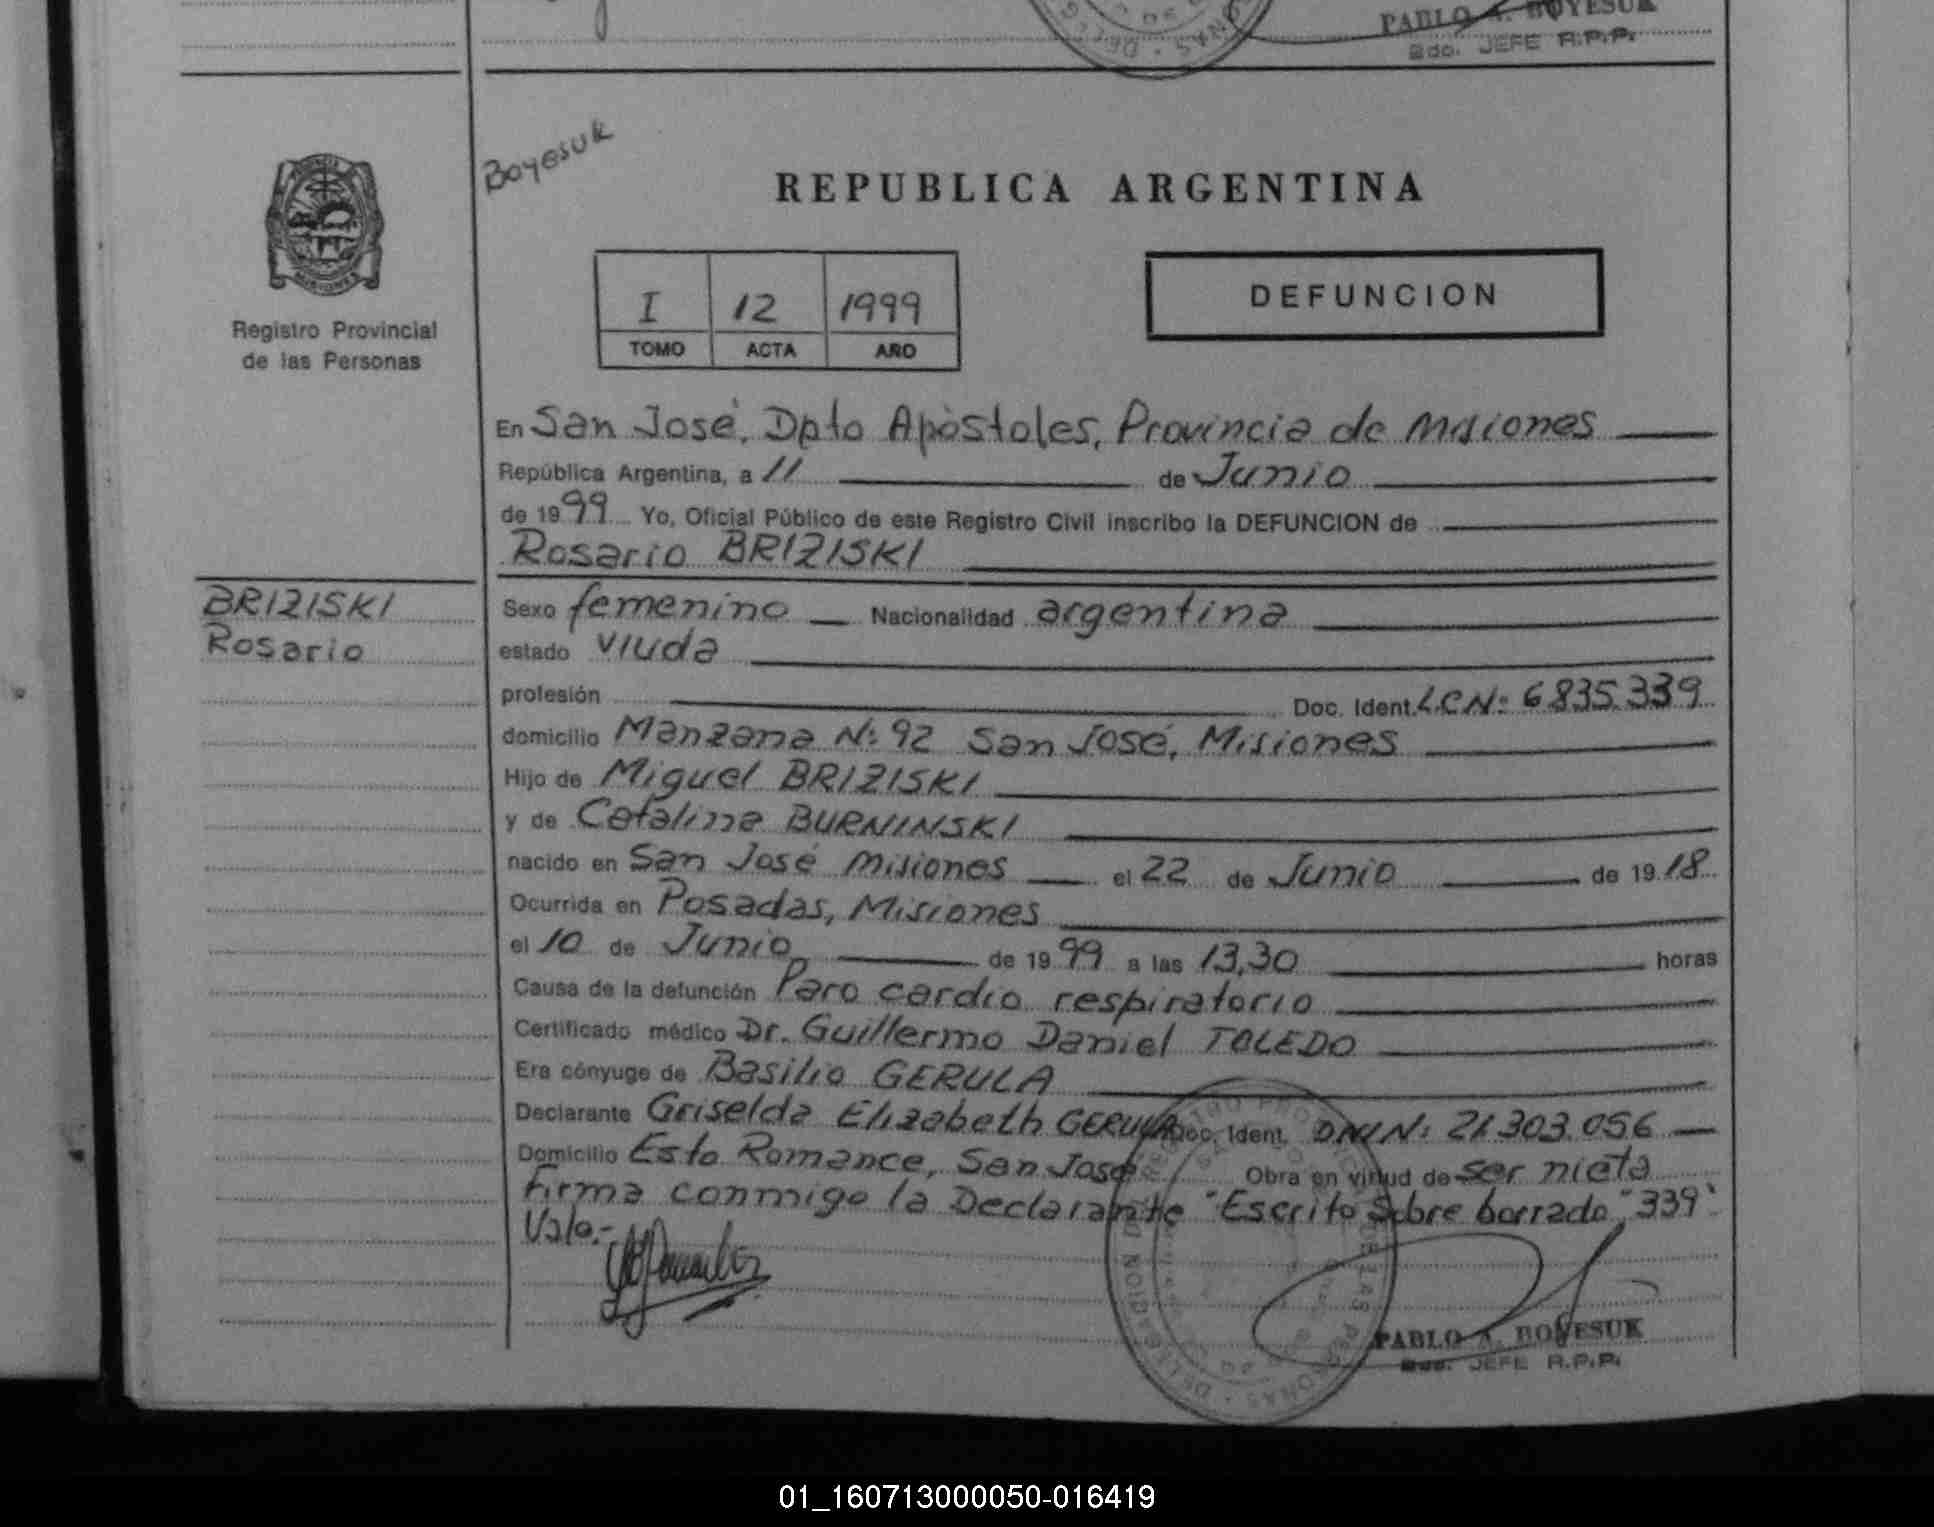 PABLO A. BOYESUK
Bdo. JEFE R.P.P.
Boyesuk
REPUBLICA ARGENTINA
I 12 1999
TOMO ACTA AÑO
DEFUNCION
Registro Provincial
de las Personas
En San José, Dpto Apóstoles, Provincia de Misiones
República Argentina, a 11 de Junio
de 1999 Yo, Oficial Público de este Registro Civil inscribo la DEFUNCION de
Rosario BRIZISKI
BRIZISKI
Rosario
Sexo femenino Nacionalidad argentina
estado viuda
profesión Doc. Ident. L.C.Nº: 6.835.339
domicilio Manzana Nº: 92 San José, Misiones
Hijo de Miguel BRIZISKI
y de Catalina BURNINSKI
nacido en San José Misiones el 22 de Junio de 1918
Ocurrida en Posadas, Misiones
el 10 de Junio de 1999 a las 13,30 horas
Causa de la defunción Paro cardio respiratorio
Certificado médico Dr. Guillermo Daniel TOLEDO
Era cónyuge de Basilio GERULA
Declarante Griselda Elizabeth GERULA Doc. Ident. DNI N: 21.303.056
Domicilio Esta Romance, San José Obra en virtud de ser nieta
Firma conmigo la Declarante "Escrito Sobre borrado" "339"
Vale.-
PABLO A. BOYESUK
Bdo. JEFE R.P.P.
01_160713000050-016419